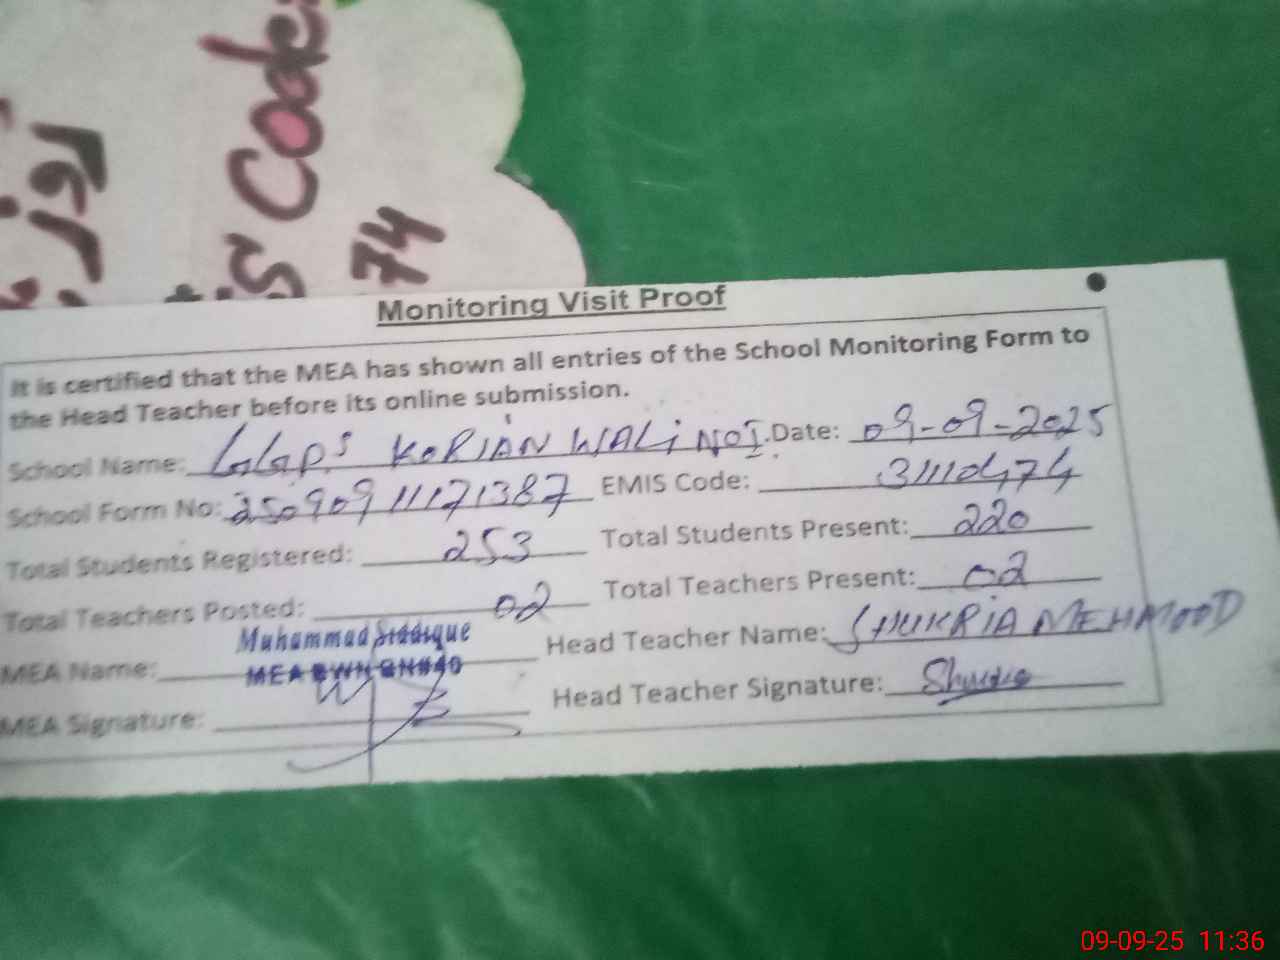 S Code
74
Monitoring Visit Proof
It is certified that the MEA has shown all entries of the School Monitoring Form to
the Head Teacher before its online submission.
School Name: GGPS KORIAN WALI NO I. Date: 09-09-2025
School Form No: 25090911171387 EMIS Code: 31110474
Total Students Registered: 253 Total Students Present: 220
Total Teachers Posted: 02 Total Teachers Present: 02
Muhammad Siddique
MEA Name: MEA BWN Head Teacher Name: SHUKRIA MEHMOOD
MEA Signature: Head Teacher Signature:
09-09-25 11:36